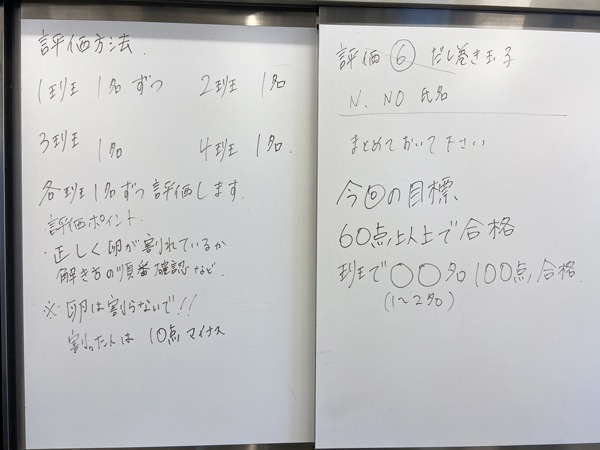 評価方法.
1班 1名ずつ 2班 1名
3班 1名 4班 1名.
各班1名ずつ評価します.
・評価ポイント.
・正しく卵が割れているか
解き方の順番確認など.
※卵は割らないで!!
割った人は 10点マイナス
評価 ⑥ だし巻き玉子
N. NO 氏名
まとめておいて下さい
今回の目標
60点以上で合格
班で〇〇名 100点.合格.
(1〜2名)